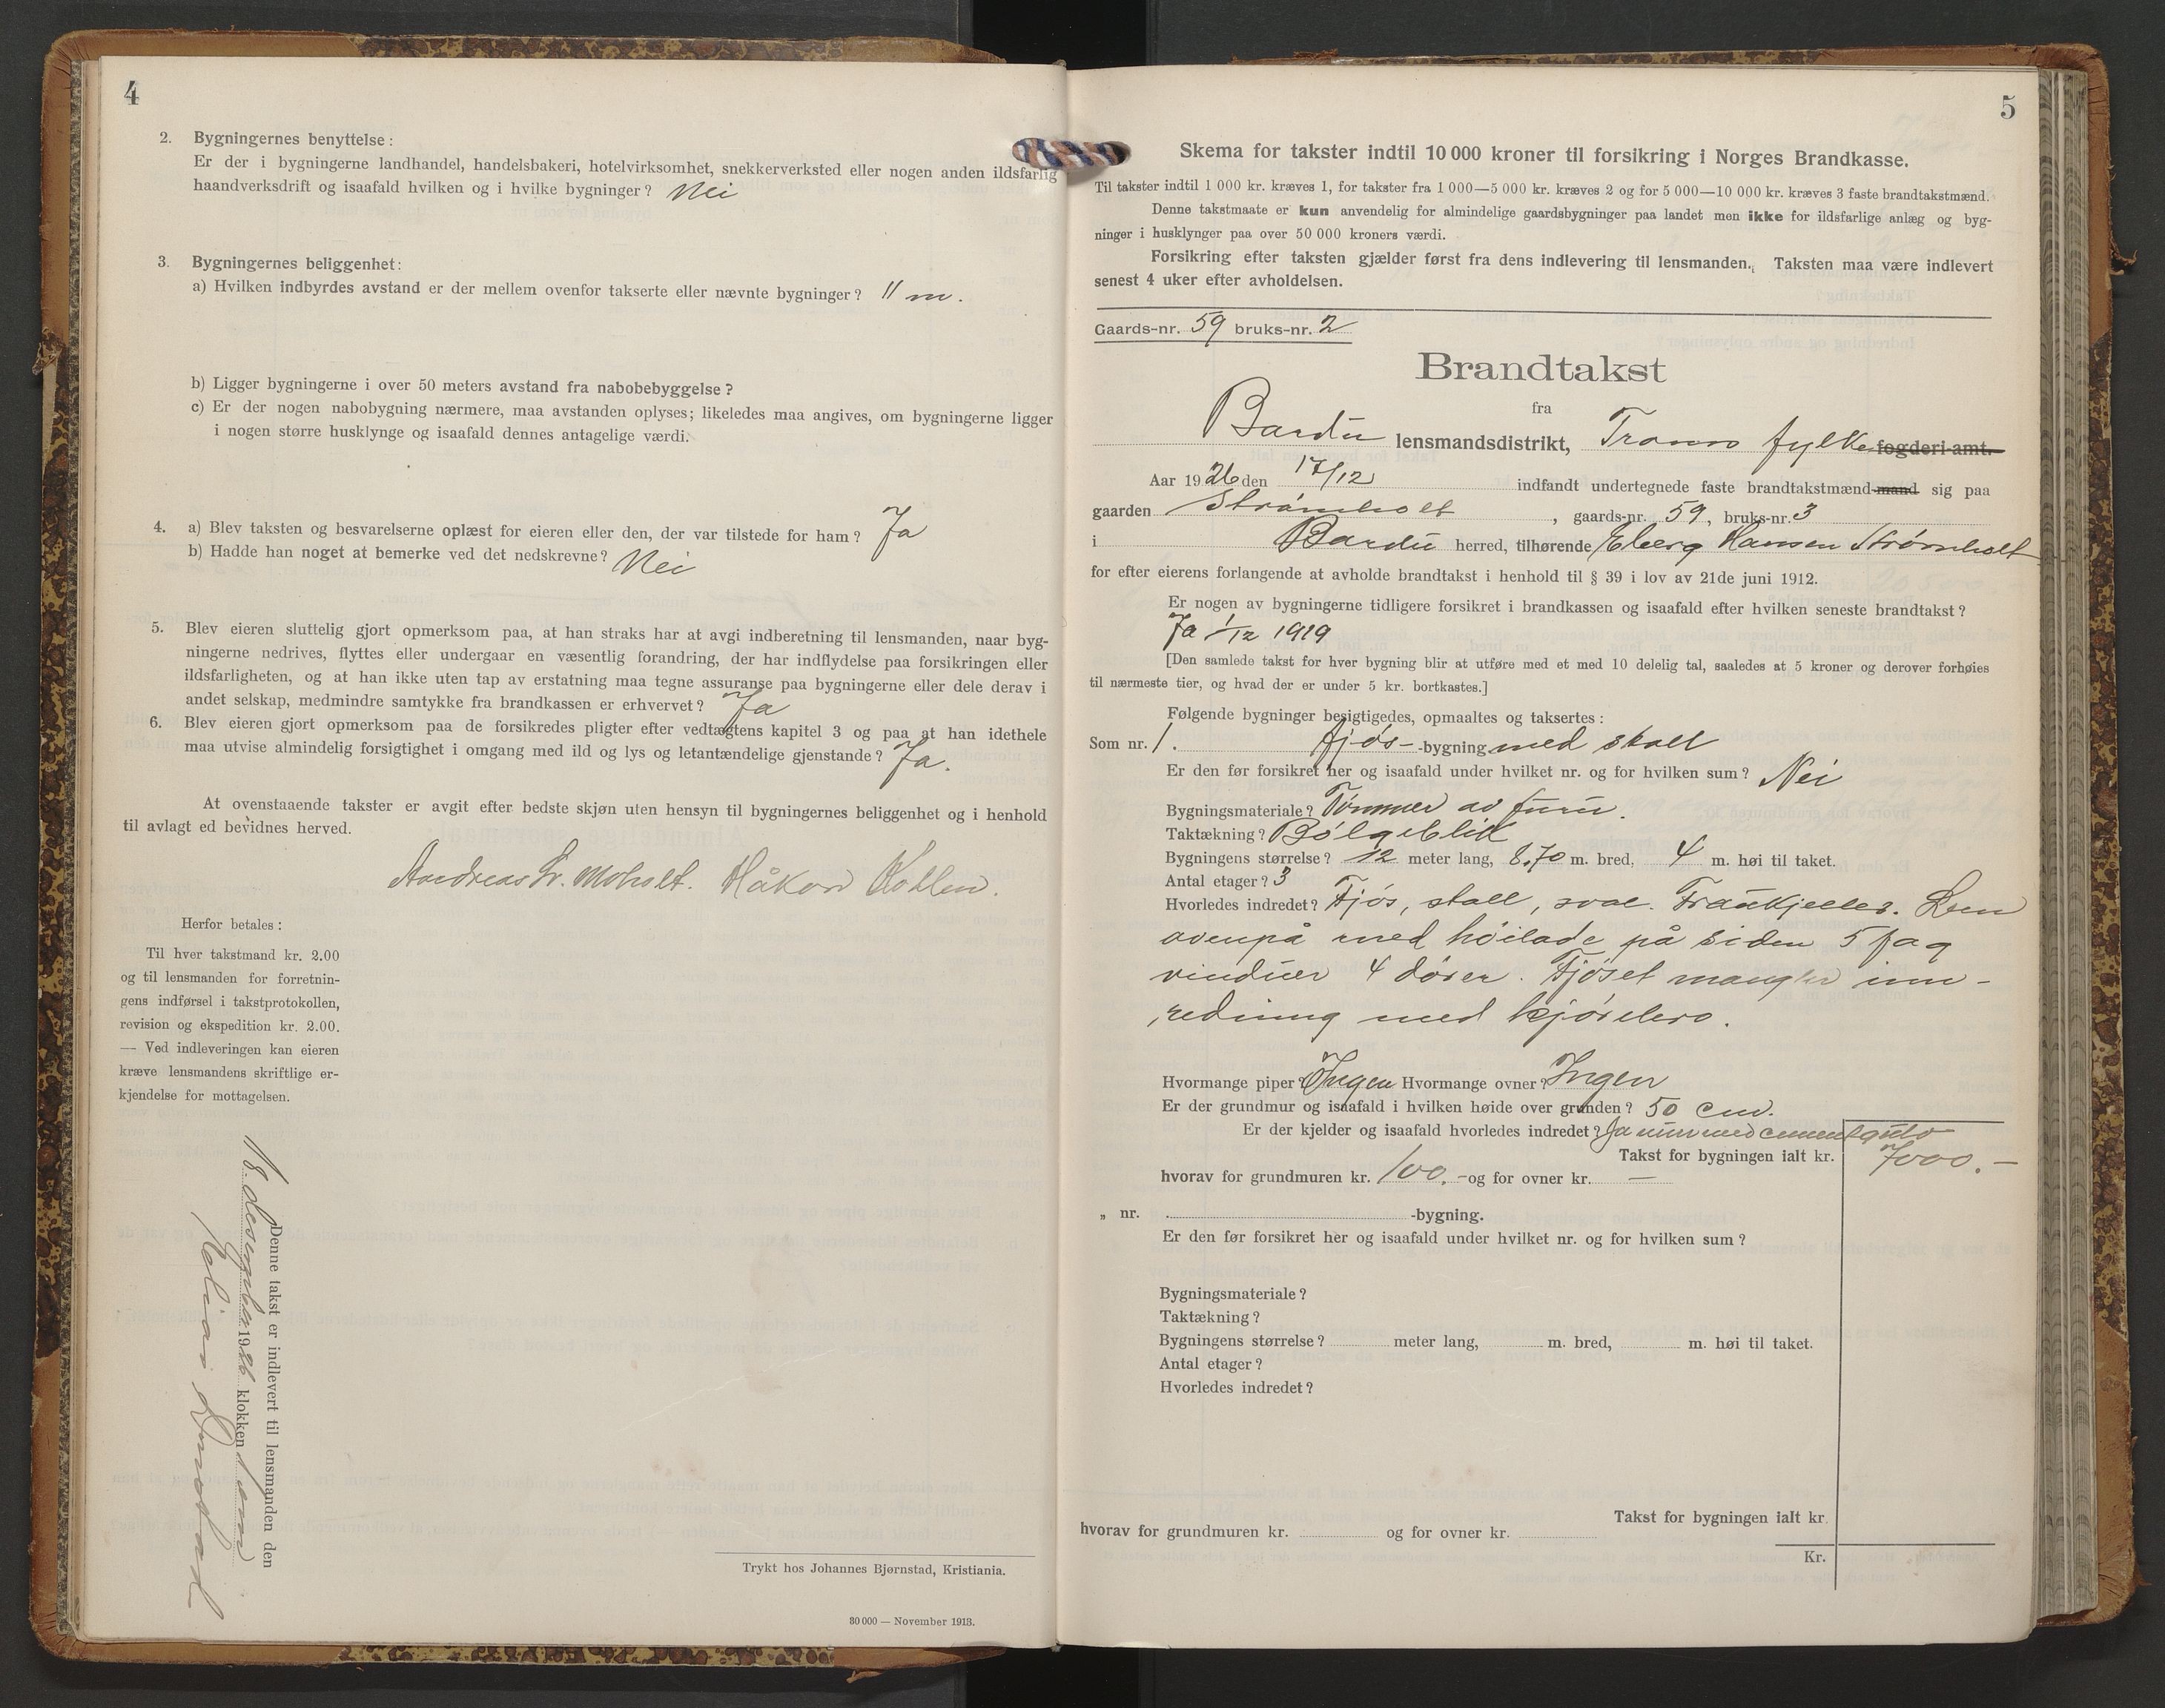 4
2. Bygningernes benyttelse:
Er der i bygningerne landhandel, handelsbakeri, hotelvirksomhet, snekkerverksted eller nogen anden ildsfarlig
haandverksdrift og isaafald hvilken og i hvilke bygninger? Nei
3. Bygningernes beliggenhet:
a) Hvilken indbyrdes avstand er der mellem ovenfor takserte eller nævnte bygninger? 11 m.
b) Ligger bygningerne i over 50 meters avstand fra nabobebyggelse?
c) Er der nogen nabobygning nærmere, maa avstanden oplyses; likeledes maa angives, om bygningerne ligger
i nogen større husklynge og isaafald dennes antagelige værdi.
4. a) Blev taksten og besvarelserne oplæst for eieren eller den, der var tilstede for ham? Ja
b) Hadde han noget at bemerke ved det nedskrevne? Nei
5. Blev eieren sluttelig gjort opmerksom paa, at han straks har at avgi indberetning til lensmanden, naar byg-
ningerne nedrives, flyttes eller undergaar en væsentlig forandring, der har indflydelse paa forsikringen eller
ildsfarligheten, og at han ikke uten tap av erstatning maa tegne assuranse paa bygningerne eller dele derav i
andet selskap, medmindre samtykke fra brandkassen er erhvervet? Ja
6. Blev eieren gjort opmerksom paa de forsikredes pligter efter vedtægtens kapitel 3 og paa at han idethele
maa utvise almindelig forsigtighet i omgang med ild og lys og letantændelige gjenstande? Ja.
At ovenstaaende takster er avgit efter bedste skjøn uten hensyn til bygningernes beliggenhet og i henhold
til avlagt ed bevidnes herved.
Andreas Moholt. Håkon Kollen.
Herfor betales:
Til hver takstmand kr. 2.00
og til lensmanden for forretnin-
gens indførsel i takstprotokollen,
revision og ekspedition kr. 2.00.
— Ved indleveringen kan eieren
kræve lensmandens skriftlige er-
kjendelse for mottagelsen.
Denne takst er indlevert til lensmanden den
18. desember 1926 klokken 1 em
Trykt hos Johannes Bjørnstad, Kristiania.
30 000 — November 1913.
5
Skema for takster indtil 10 000 kroner til forsikring i Norges Brandkasse.
Til takster indtil 1 000 kr. kræves 1, for takster fra 1 000—5 000 kr. kræves 2 og for 5 000—10 000 kr. kræves 3 faste brandtakstmænd.
Denne takstmaate er kun anvendelig for almindelige gaardsbygninger paa landet men ikke for ildsfarlige anlæg og byg-
ninger i husklynger paa over 50 000 kroners værdi.
Forsikring efter taksten gjælder først fra dens indlevering til lensmanden. Taksten maa være indlevert
senest 4 uker efter avholdelsen.
Gaards-nr. 59 bruks-nr. 2
Brandtakst
fra
Bardu lensmandsdistrikt, Troms fylke fogderi-amt.
Aar 1926 den 17/12 indfandt undertegnede faste brandtakstmænd-mand sig paa
gaarden Strømholt, gaards-nr. 59, bruks-nr. 3
i Bardu herred, tilhørende Eberg Hansen Strømholt
for efter eierens forlangende at avholde brandtakst i henhold til § 39 i lov av 21de juni 1912.
Er nogen av bygningerne tidligere forsikret i brandkassen og isaafald efter hvilken seneste brandtakst?
Ja 1/12 1919
[Den samlede takst for hver bygning blir at utføre med et med 10 delelig tal, saaledes at 5 kroner og derover forhøies
til nærmeste tier, og hvad der er under 5 kr. bortkastes.]
Følgende bygninger besigtigedes, opmaaltes og taksertes:
Som nr. 1. Fjøs- -bygning med stall
Er den før forsikret her og isaafald under hvilket nr. og for hvilken sum? Nei
Bygningsmateriale? Tømmer av furu.
Taktækning? Bølgeblik
Bygningens størrelse? 12 meter lang, 8.70 m. bred, 4 m. høi til taket.
Antal etager? 3
Hvorledes indredet? Fjøs, stall, sval. Traukjeller. Lem
ovenpå med høilade på siden 5 fag
vinduer 4 dører. Fjøset mangler inn-
redning med kjørebro.
Hvormange piper? Ingen Hvormange ovner? Ingen
Er der grundmur og isaafald i hvilken høide over grunden? 50 cm.
Er der kjelder og isaafald hvorledes indredet? Ja mur med cementgulv
Takst for bygningen ialt kr. 7000.—
hvorav for grundmuren kr. 100.- og for ovner kr. —
„ nr. -bygning.
Er den før forsikret her og isaafald under hvilket nr. og for hvilken sum?
Bygningsmateriale?
Taktækning?
Bygningens størrelse? meter lang, m. bred, m. høi til taket.
Antal etager?
Hvorledes indredet?
Takst for bygningen ialt kr.
hvorav for grundmuren kr. og for ovner kr.
Kr.